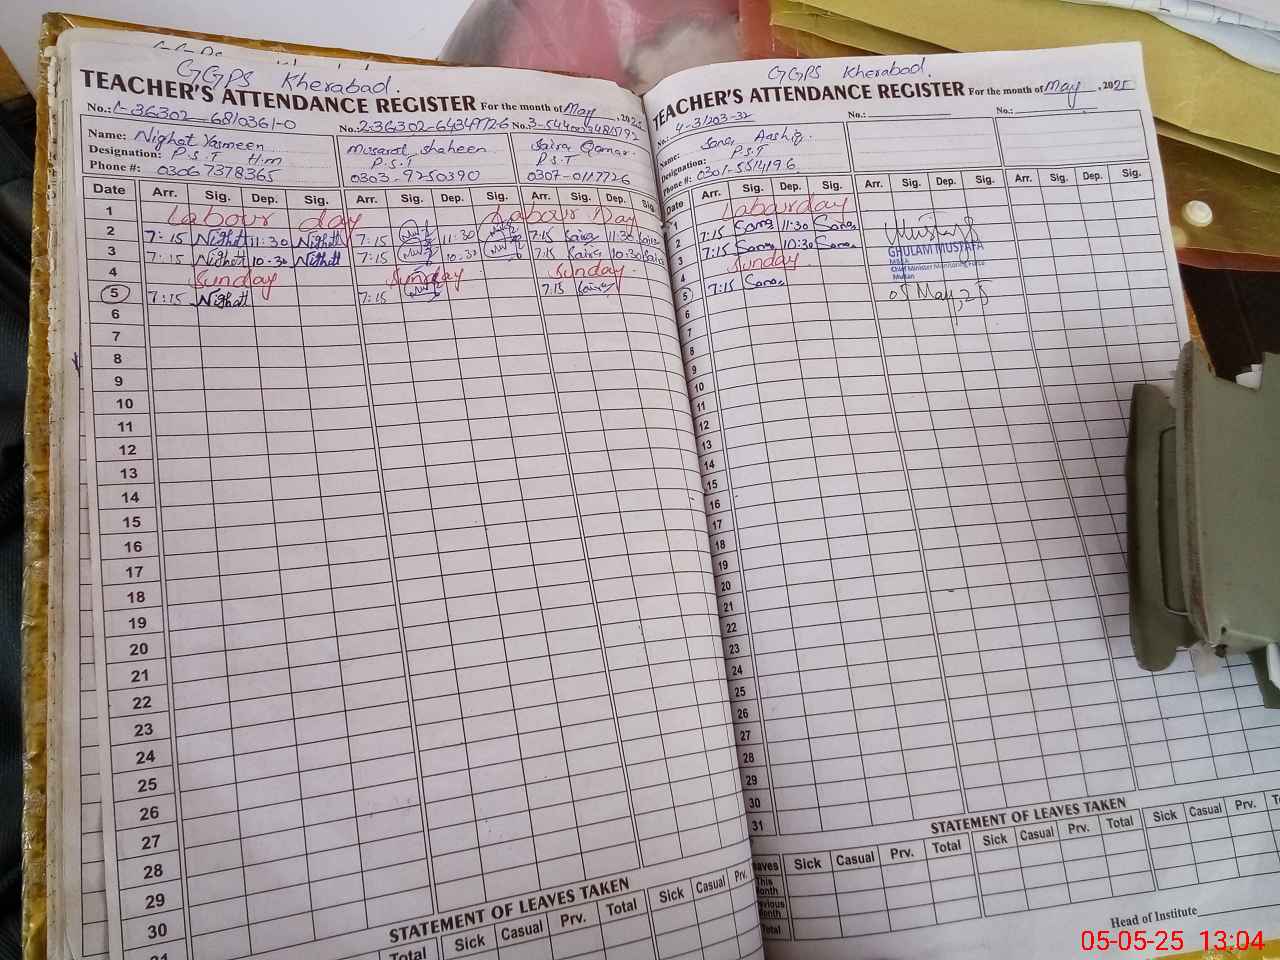 GGPS Kherabad.
TEACHER'S ATTENDANCE REGISTER For the month of May, 202
No.: 1-36302-6810361-0 No.: 2-36302-6434972-6 No.:
Name: Nighat Yasmeen Musarat Shaheen Saira Qamar
Designation: P.S.T H.M P.S.T P.S.T
Phone #: 03067378365 0303-9750390 0307-0117726
Date Arr. Sig. Dep. Sig. Arr. Sig. Dep. Sig. Arr. Sig. Dep. Sig.
1 Labour day Labour Day
2 7:15 Nighat 11:30 Nighat 7:15 11:30 7:15 Saira 11:30 Saira
3 7:15 Nighat 10:30 Nighat 7:15 10:30 7:15 Saira 10:30 Saira
4 Sunday Sunday Sunday
5 7:15 Nighat 7:15 7:15 Saira
6
7
8
9
10
11
12
13
14
15
16
17
18
19
20
21
22
23
24
25
26
27
28
29
30
31
STATEMENT OF LEAVES TAKEN
Total Sick Casual Prv. Total Sick Casual Prv.
GGPS Kherabad.
TEACHER'S ATTENDANCE REGISTER For the month of May, 2025
No.: 4-31203-32 No.: No.:
Name: Sana Aashiq
Designation: P.S.T
Phone #: 0301-5514196
Date Arr. Sig. Dep. Sig. Arr. Sig. Dep. Sig. Arr. Sig. Dep. Sig.
1 Labour day
2 7:15 Sana 11:30 Sana
3 7:15 Sana 10:30 Sana
4 Sunday
5 7:15 Sana
Mustafa
GHULAM MUSTAFA
MEA
Chief Minister Monitoring Force
Multan
05 May, 25
6
7
8
9
10
11
12
13
14
15
16
17
18
19
20
21
22
23
24
25
26
27
28
29
30
31
STATEMENT OF LEAVES TAKEN
Leaves Sick Casual Prv. Total Sick Casual Prv. Total Sick Casual Prv.
This Month
Previous Month
Total
Head of Institute
05-05-25 13:04